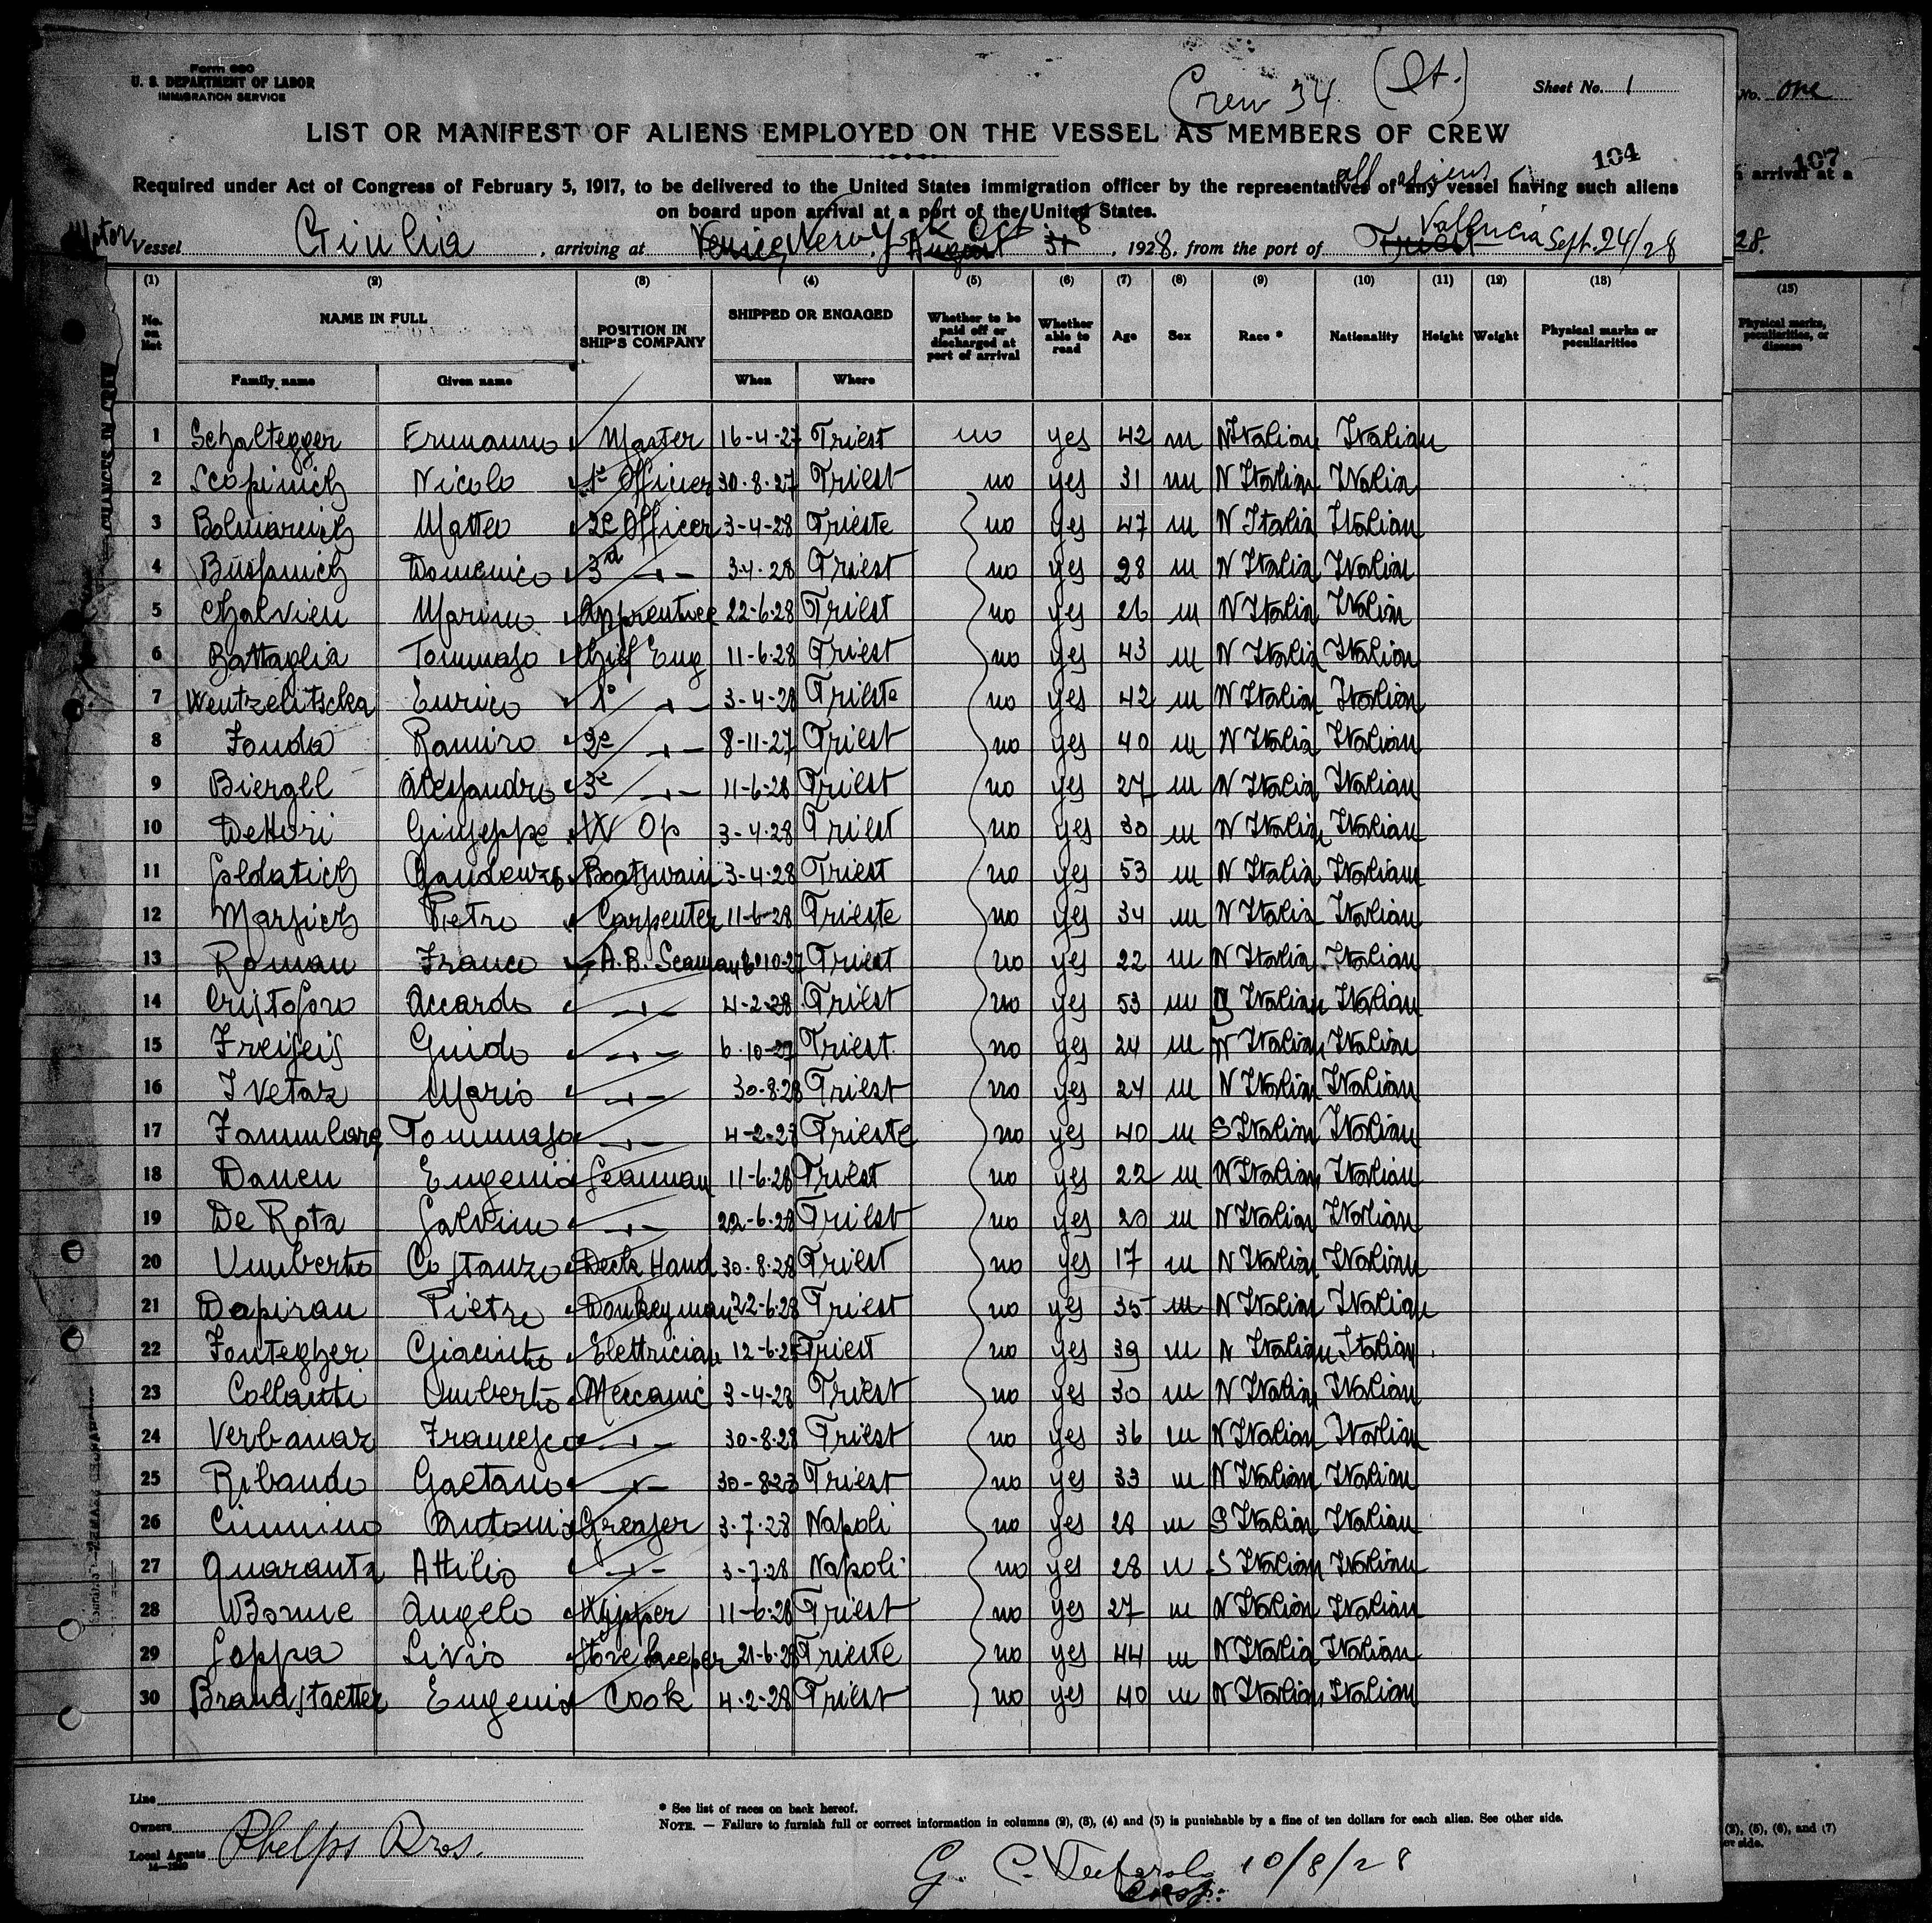 Form 680
U. S. DEPARTMENT OF LABOR
IMMIGRATION SERVICE
Crew 34. (It.)
Sheet No. 1
No. one
LIST OR MANIFEST OF ALIENS EMPLOYED ON THE VESSEL AS MEMBERS OF CREW
all aliens
104
107
Required under Act of Congress of February 5, 1917, to be delivered to the United States immigration officer by the representatives of any vessel having such aliens
on board upon arrival at a port of the United States.
arrival at a
Motor Vessel Giulia, arriving at Venice, New York Oct 8 August 31, 1928, from the port of Triest Vallencia Sept. 24/28
28.
(1) (2) (3) (4) (5) (6) (7) (8) (9) (10) (11) (12) (13)
No. on list NAME IN FULL POSITION IN SHIP'S COMPANY SHIPPED OR ENGAGED Whether to be paid off or discharged at port of arrival Whether able to read Age Sex Race * Nationality Height Weight Physical marks or peculiarities
(15)
Physical marks, peculiarities, or disease
Family name Given name When Where
1 Schaltegger Ermanno Master 16-4-27 Triest no yes 42 m N Italian Italian
2 Scopinich Nicolo 1° Officier 30-8-27 Triest no yes 31 m N Italian Italin
3 Bolmarcich Matteo 2e Officer 3-4-28 Trieste no yes 47 m N Italia Italian
4 Bussanich Domenico 3rd -"- 3-4-28 Triest no yes 28 m N Italia Italian
5 Chalvien Marino Apprentice 22-6-28 Triest no yes 26 m N Italia Italin
6 Battaglia Tommaso Chif Eng 11-6-28 Triest no yes 43 m N Italia Italian
7 Wentzelitschka Enrico 1° -"- 3-4-28 Trieste no yes 42 m N Italian Italian
8 Fonda Ramiro 2e -"- 8-11-27 Triest no yes 40 m N Italia Italian
9 Biergel Alessandro 3e -"- 11-6-28 Triest no yes 27 m N Italia Italian
10 Dettori Giuseppe W Op 3-4-28 Triest no yes 30 m N Italian Italian
11 Soldatich Gaudenzo Boatswain 3-4-28 Triest no yes 53 m N Italia Italian
12 Marsich Pietro Carpenter 11-6-28 Trieste no yes 34 m N Italia Italian
13 Roman Franco A.B. Seaman 6-10-27 Triest no yes 22 m N Italia Italian
14 Cristoforo Accardo -"- 4-2-28 Triest no yes 53 m S Italian Italian
15 Freiseis Guido -"- 6-10-27 Triest no yes 24 m N Italian Italian
16 Ivetaz Mario -"- 30-8-28 Triest no yes 27 m N Italian Italian
17 Tommaso -"- 4-2-28 Trieste no yes 40 m S Italian Italian
18 Daneu Eugenio Seaman 11-6-28 Triest no yes 22 m N Italian Italian
19 De Rota Salvino -"- 22-6-28 Triest no yes 20 m N Italian Italian
20 Umberto Costanzo Deck Hand 30-8-28 Triest no yes 17 m N Italian Italian
21 Dapiran Pietro Donkeyman 22-6-28 Triest no yes 35 m N Italian Italian
22 Fontegher Giacinto Elettrician 12-6-28 Triest no yes 39 m N Italian Italian
23 Collautti Umberto Meccanic 3-4-28 Triest no yes 30 m N Italian Italian
24 Verbanaz Francesco -"- 30-8-28 Triest no yes 36 m N Italian Italian
25 Ribaudo Gaetano -"- 30-8-28 Triest no yes 33 m N Italian Italian
26 Cimmino Antonio Greaser 3-7-28 Napoli no yes 28 m S Italian Italian
27 Quaranta Attilio -"- 3-7-28 Napoli no yes 28 m S Italian Italian
28 Bonne Angelo Wipper 11-6-28 Triest no yes 27 m N Italian Italian
29 Soppa Livio Store keeper 21-6-28 Trieste no yes 44 m N Italia Italian
30 Brandstaetter Eugenio Cook 4-2-28 Triest no yes 40 m N Italian Italian
Line
Owners
Local Agents Phelps Bros.
* See list of races on back hereof.
NOTE. — Failure to furnish full or correct information in columns (2), (3), (4) and (5) is punishable by a fine of ten dollars for each alien. See other side.
(2), (5), (6), and (7)
er side.
G. C. 10/8/28